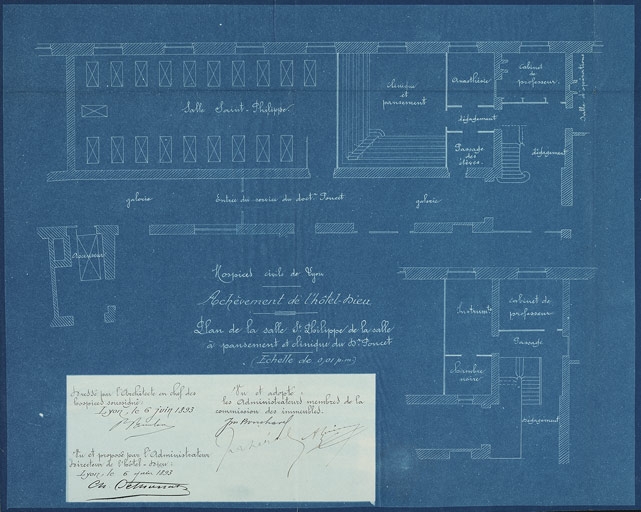 Salle Saint-Philippe
Clinique
et
pansement
Anesthésie
Cabinet
de
professeur.
Salle d'opérations
dégagement
Passage
des
élèves.
dégagement
galerie
Entrée du service du doctr Poncet
galerie
Ascenseur
Hospices civils de Lyon
Achèvement de l'hôtel-Dieu
Plan de la salle St Philippe de la salle
à pansement et clinique du Dr Poncet
(Echelle de 0,01 p.m)
Instruments
Cabinet de
professeur
Passage
Chambre
noire
dégagement
Dressé par l'Architecte en chef des
hospices soussigné:
Lyon, le 6 juin 1893
Vu et adopté:
les Administrateurs membres de la
commission des immeubles.
Vu et proposé par l'Administrateur
directeur de l'hôtel-Dieu:
Lyon, le 6 juin 1893